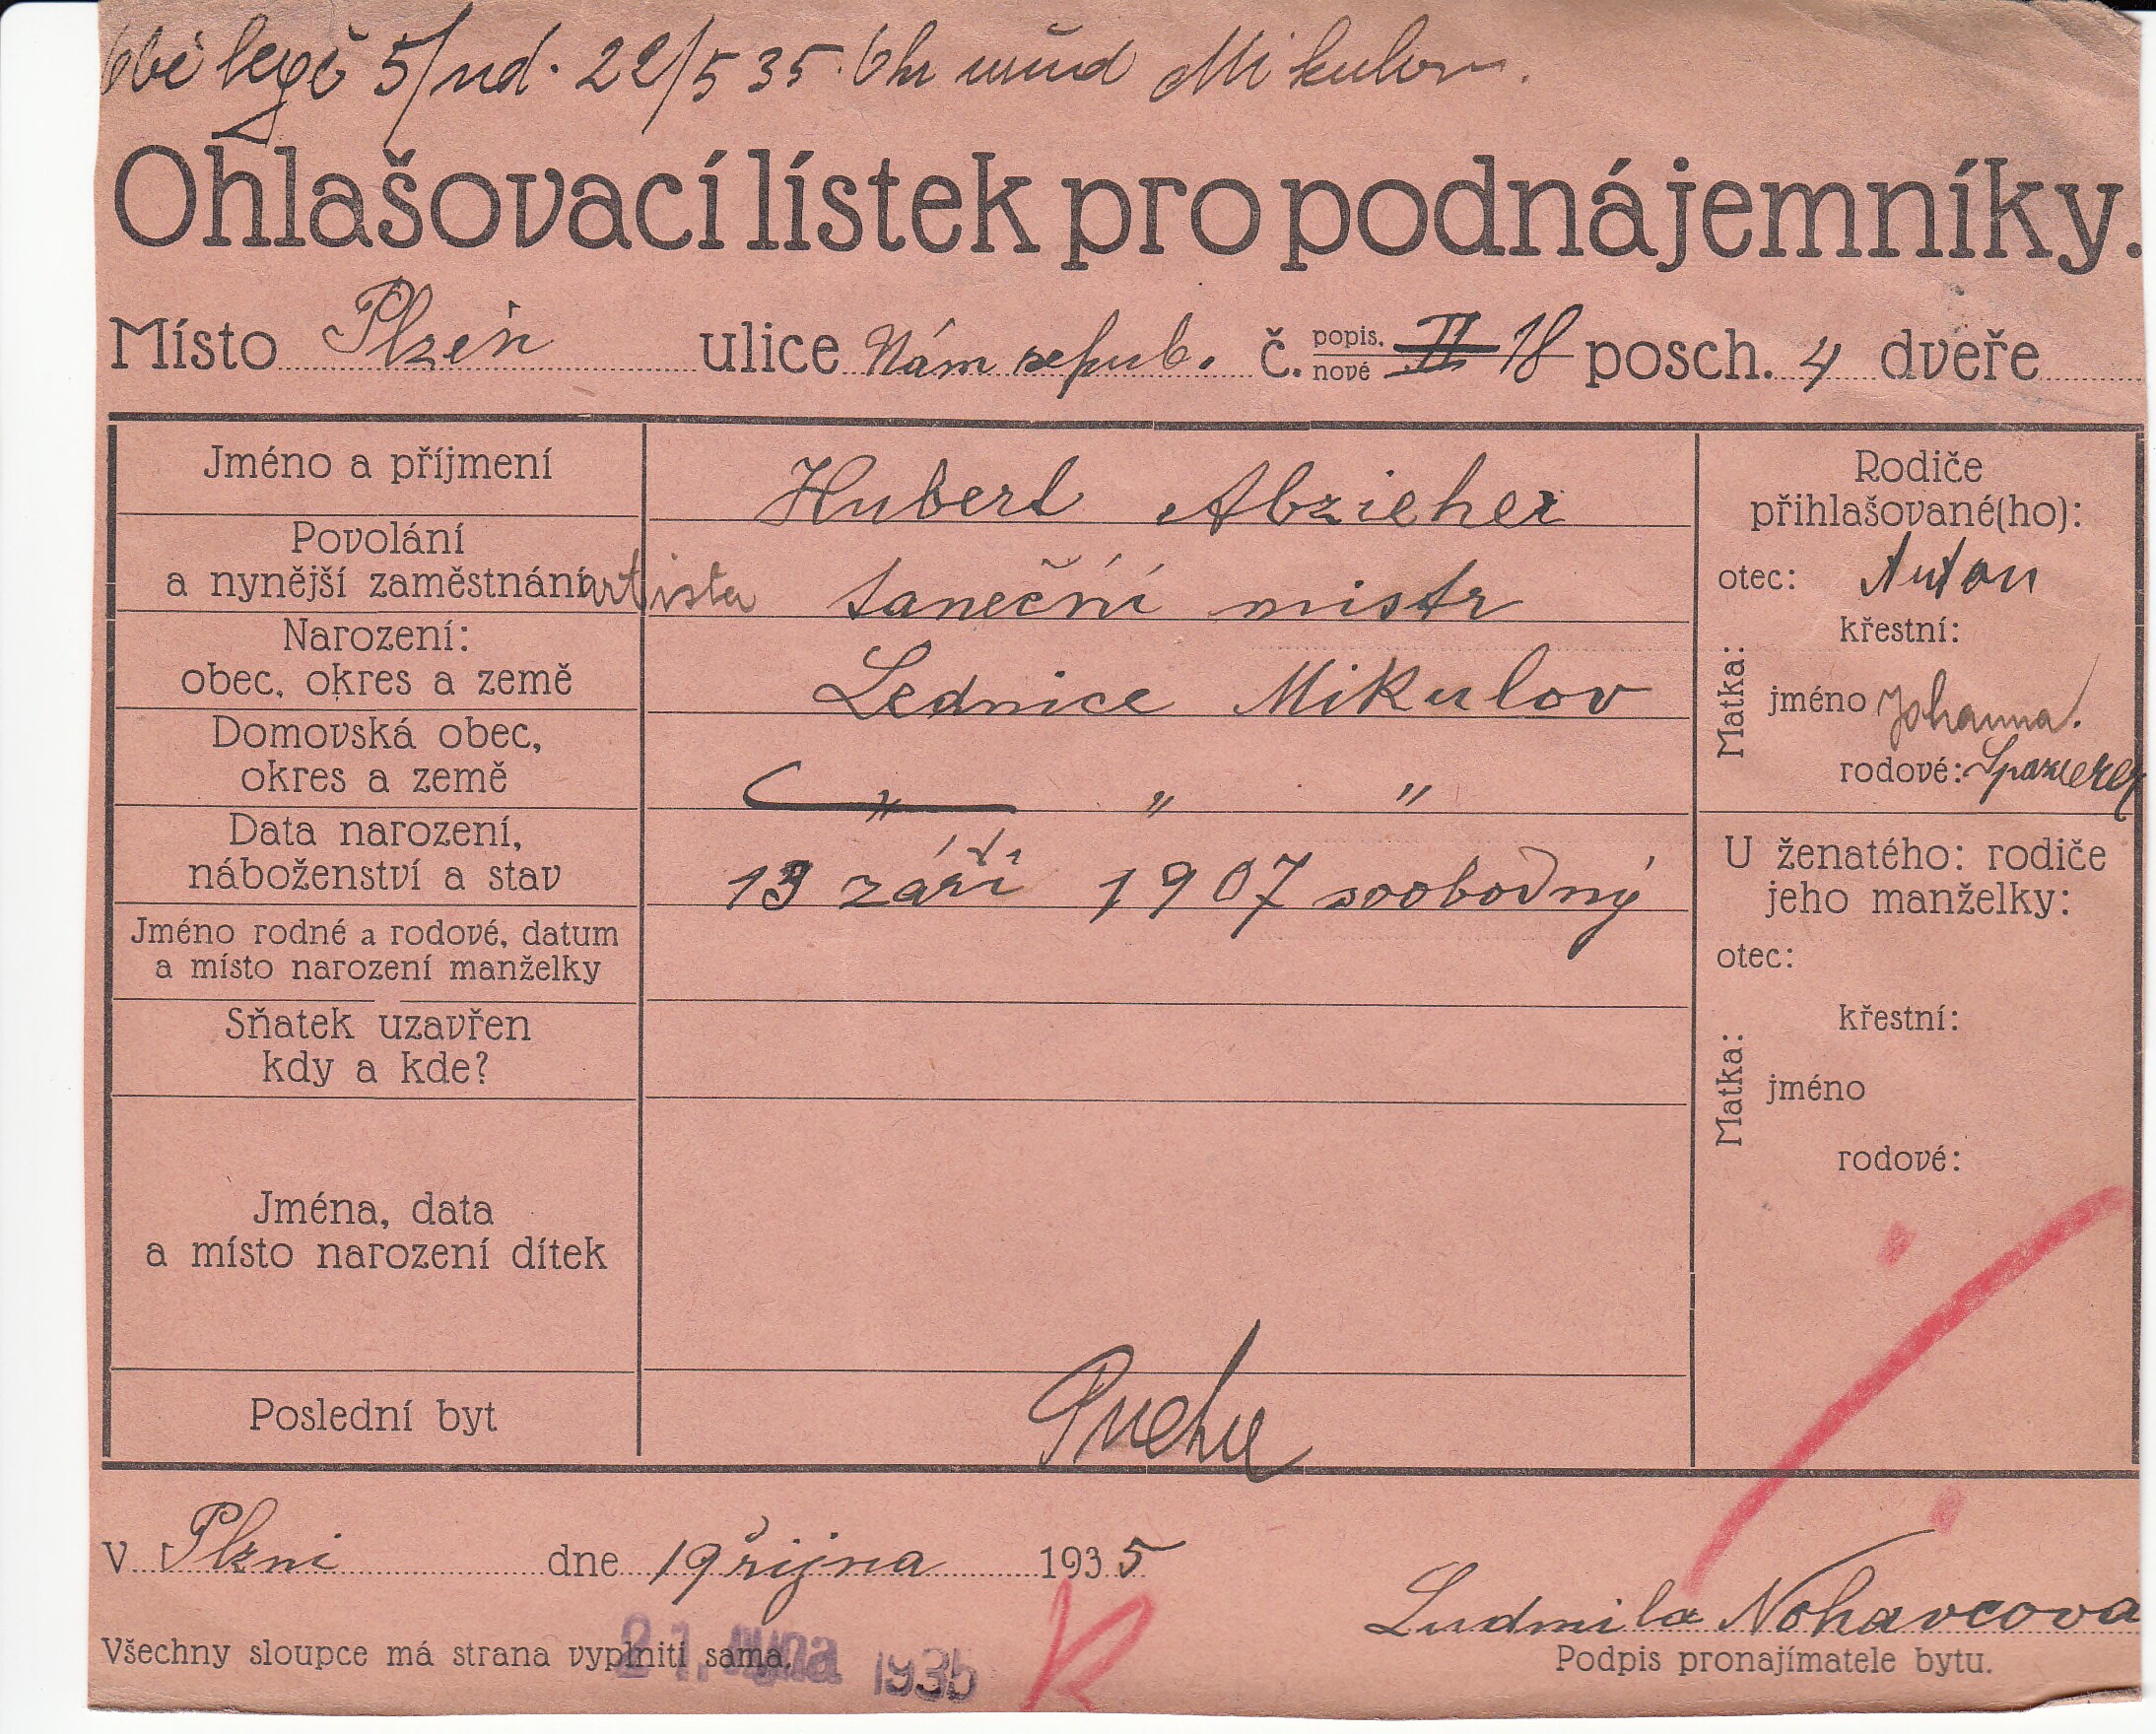 legě 5/ud. 22/5 35. Mikulov.
Ohlašovací lístek pro podnájemníky.
Místo Plzeň ulice Nám repub. č. popis. nové II 18 posch. 4 dveře
Jméno a příjmení
Hubert Abzieher
Povolání
a nynější zaměstnání
artista taneční mistr
Narození:
obec, okres a země
Lednice Mikulov
Domovská obec,
okres a země
" " "
Data narození,
náboženství a stav
13 září 1907 svobodný
Jméno rodné a rodové, datum
a místo narození manželky
Sňatek uzavřen
kdy a kde?
Jména, data
a místo narození dítek
Poslední byt
Rodiče
přihlašované(ho):
otec: Anton
Matka:
křestní:
jméno Johanna.
rodové: Spazierer
U ženatého: rodiče
jeho manželky:
otec:
Matka:
křestní:
jméno
rodové:
V Plzni dne 19 října 1935
Ludmila Nohavcova
Všechny sloupce má strana vyplniti sama.
Podpis pronajímatele bytu.
21. října 1935
K